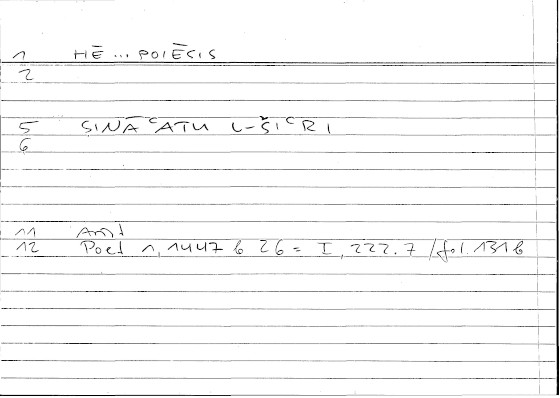 1 HĒ ... POIĒCIS
2
5 ṢINĀʿATU L-ŠIʿRI
6
11 Arist
12 Poet 1, 1447 b 26 = I, 222.7 / fol. 131 b